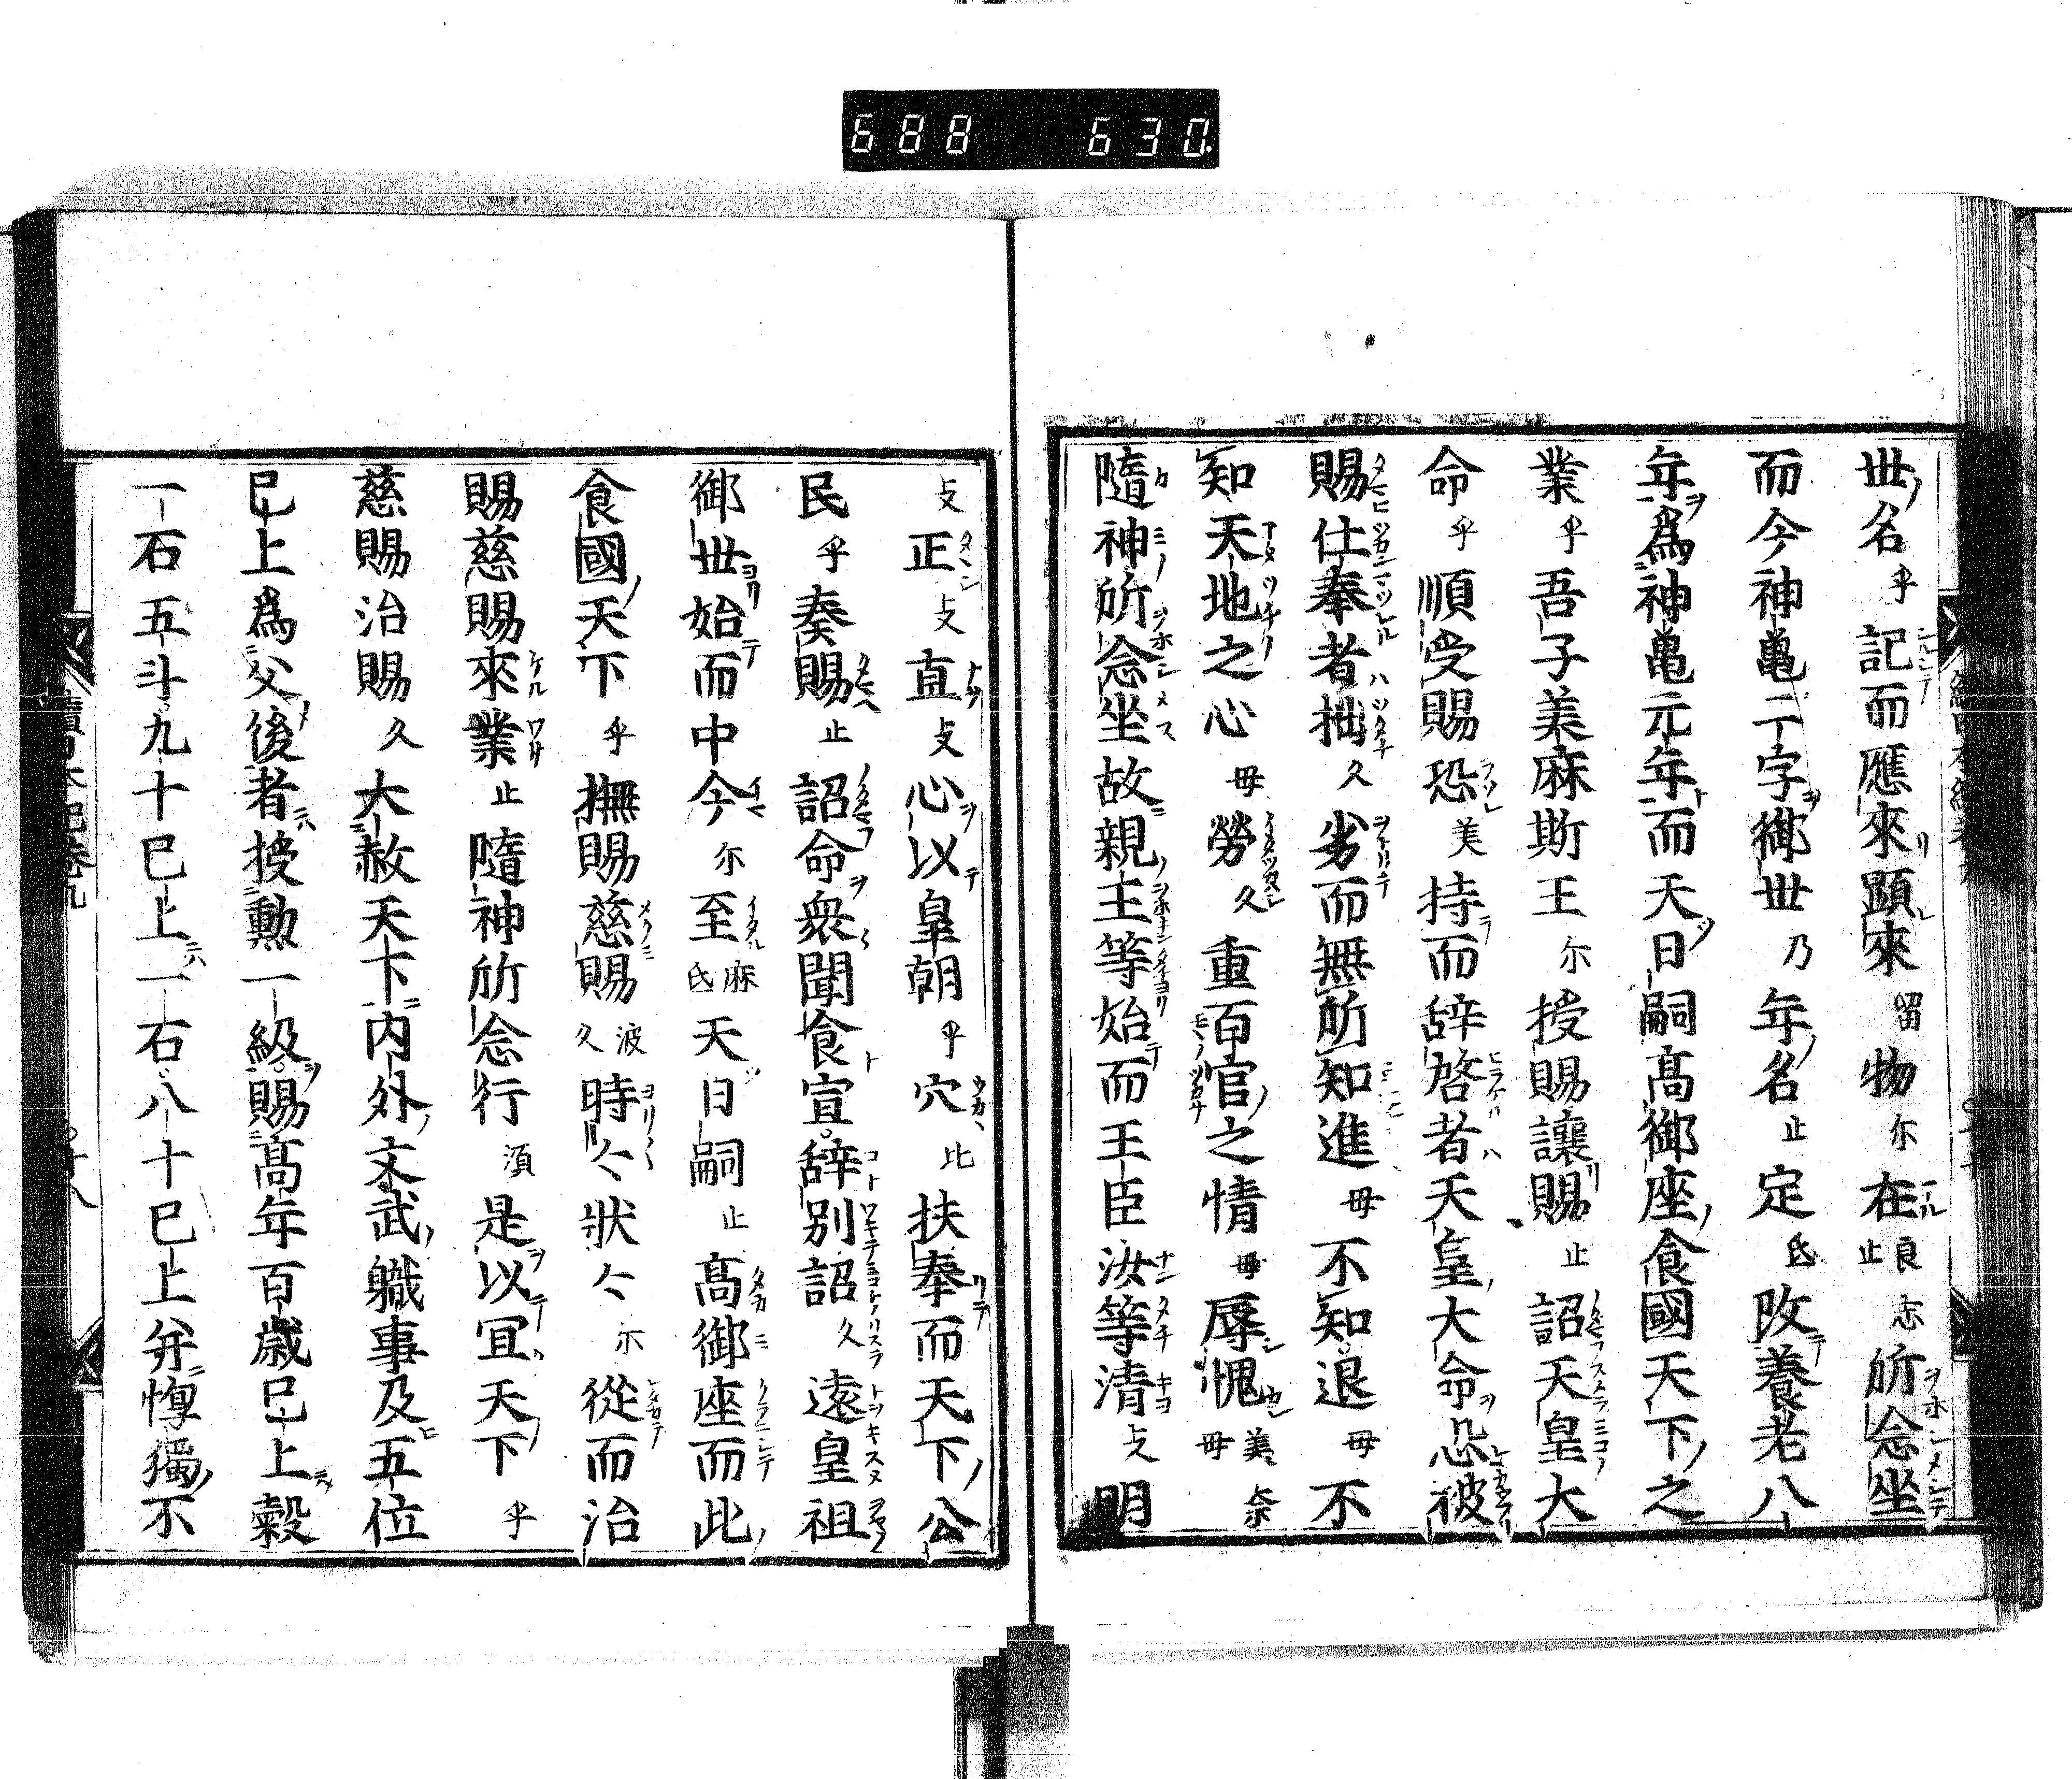 688 630
世名乎記而應來顕來留物尓在良止志所念坐
而今神亀二字御世乃年名止定氐改養老八
年爲神亀元年而天日嗣髙御座食國天下之
業乎吾子美麻斯王尓授賜讓賜止詔天皇大
命乎順受賜恐美持而辞啓者天皇大命恐被
賜仕奉者拙久劣而無所知進毋不知退毋不
知天地之心毋勞久重百官之情毋辱愧美奈毋
隨神所念坐故親王等始而王臣汝等清支明
支正支直支心以皇朝乎穴比扶奉而天下公
民乎奏賜止詔命衆聞食宣辞別詔久遠皇祖
御世始而中今尓至麻氐天日嗣止髙御座而此
食國天下乎撫賜慈賜波久時々状々尓從而治
賜慈賜來業止隨神所念行湏是以冝天下乎
慈賜治賜久大赦天下内外文武職事及五位
已上爲父後者授勲一級賜髙年百歳已上穀
一石五斗九十已上一石八十已上并惸獨不